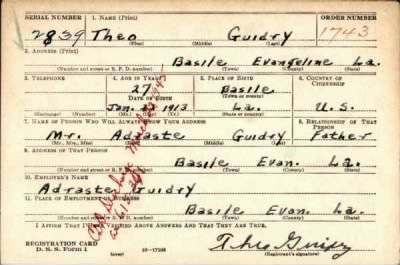 SERIAL NUMBER 1. NAME (Print) ORDER NUMBER
2839 Theo Guidry 1743
(First) (Middle) (Last)
2. ADDRESS (Print)
Basile Evangeline La.
(Number and street or R. F. D. number) (Town) (County) (State)
3. TELEPHONE 4. AGE IN YEARS 5. PLACE OF BIRTH 6. COUNTRY OF CITIZENSHIP
27 Basile
DATE OF BIRTH (Town or county)
Jan. 1913 La. U. S.
(Exchange) (Number) (Mo.) (Day) (Yr.) (State or country)
7. NAME OF PERSON WHO WILL ALWAYS KNOW YOUR ADDRESS 8. RELATIONSHIP OF THAT PERSON
Mr. Adraste Guidry Father
(Mr., Mrs., Miss) (First) (Middle) (Last)
9. ADDRESS OF THAT PERSON
Basile Evan. La.
(Number and street or R. F. D. number) (Town) (County) (State)
10. EMPLOYER'S NAME
Adraste Guidry
11. PLACE OF EMPLOYMENT OR BUSINESS
Basile Evan. La.
(Number and street or R. F. D. number) (Town) (County) (State)
I AFFIRM THAT I HAVE VERIFIED ABOVE ANSWERS AND THAT THEY ARE TRUE.
REGISTRATION CARD
D. S. S. Form 1 (over) 16-17105 Theo Guidry
(Registrant's signature)
1945